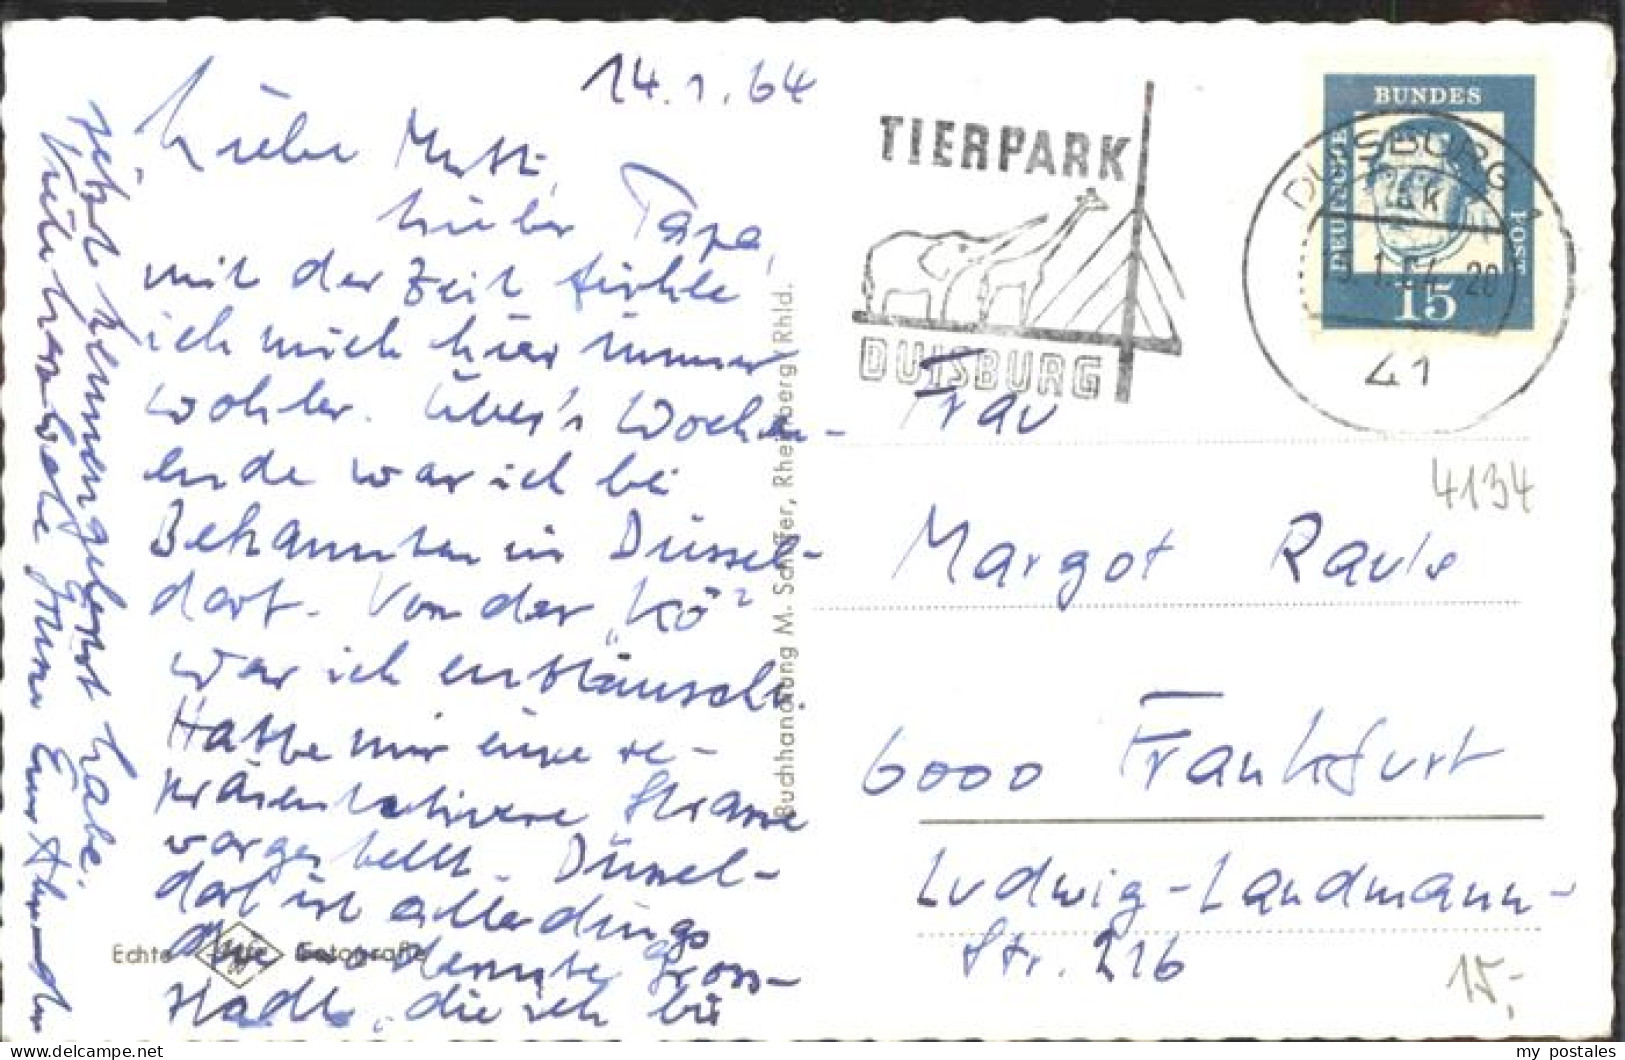 14.1.64
Liebe Mutti,
lieber Papa,
mit der Zeit fühle
ich mich hier immer
wohler. Über's Wochen-
ende war ich bei
Bekannten in Düssel-
dorf. Von der „Kö“
war ich enttäuscht.
Hatte mir eine re-
präsentativere Strasse
vorgestellt. Düssel-
dorf ist allerdings
die modernste Gross-
stadt, die ich bis
jetzt kennengelernt habe.
Viele herzliche Grüsse Euer
TIERPARK
DUISBURG
DEUTSCHE
BUNDES
POST
15
DUISBURG 1
41
Frau
Margot Rauls
6000 Frankfurt
Ludwig-Landmann-
Str. 216
4134
15,-
Buchhandlung M. Schiffer, Rheinberg Rhld.
Echte Fotografie
my_postales
www.delcampe.net